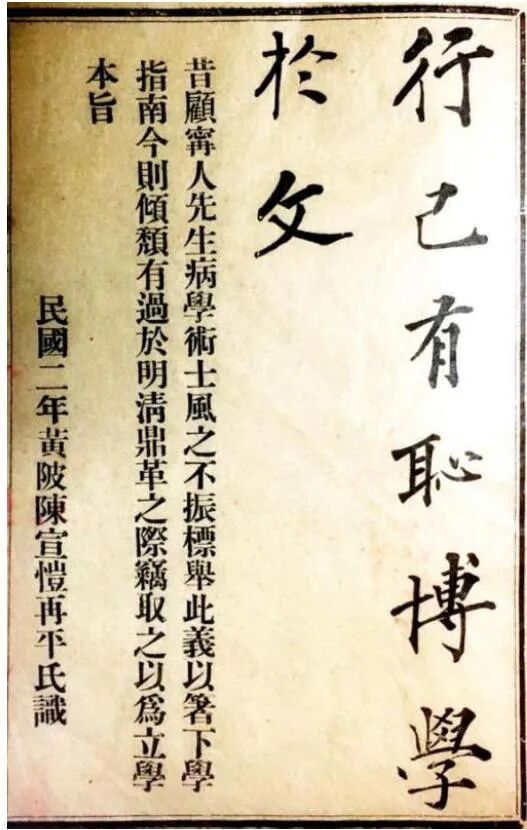 行己有恥博學
於文
昔顧甯人先生病學術士風之不振標舉此義以箸下學
指南今則傾頹有過於明淸鼎革之際竊取之以爲立學
本旨
民國二年黃陂陳宣愷再平氏識